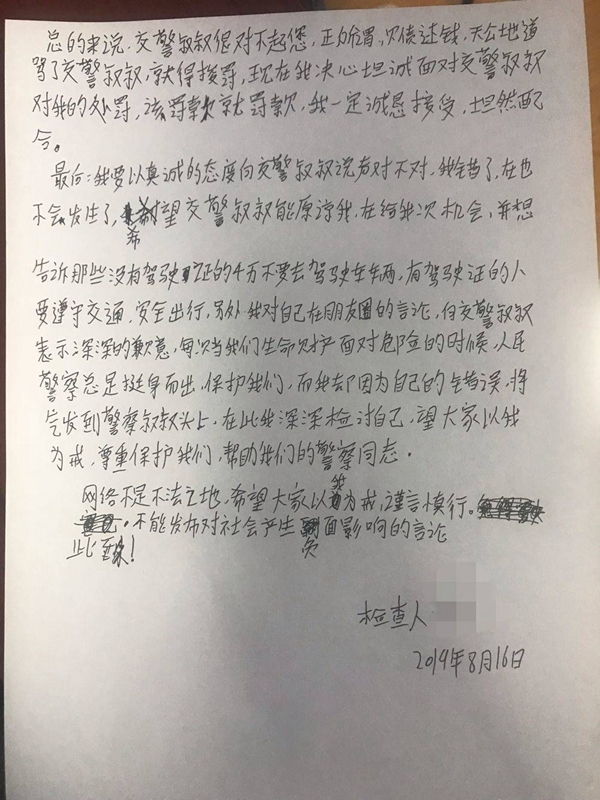 总的来说,交警叔叔很对不起您,正所谓,欠债还钱,天公地道
骂了交警叔叔,就得挨罚,现在我决心坦诚面对交警叔叔
对我的处罚,该罚款就罚款,我一定诚恳接受,坦然配
合。
最后:我要以真诚的态度向交警叔叔说声对不对,我错了,在也
不会发生了,希望交警叔叔能原谅我,在给我次机会,并想
告诉那些没有驾驶证的千万不要去驾驶车车辆,有驾驶证的人
要遵守交通,安全出行,另外我对自己在朋友圈的言论,向交警叔叔
表示深深的歉意,每次当我们生命财产面对危险的时候,人民
警察总是挺身而出,保护我们,而我却因为自己的错误,将
气发到警察叔叔头上,在此我深深检讨自己,望大家以我
为戒,尊重保护我们,帮助我们的警察同志。
网络不是不法之地,希望大家以我为戒,谨言慎行。
不能发布对社会产生负面影响的言论
此致!
检查人
2019年8月16日